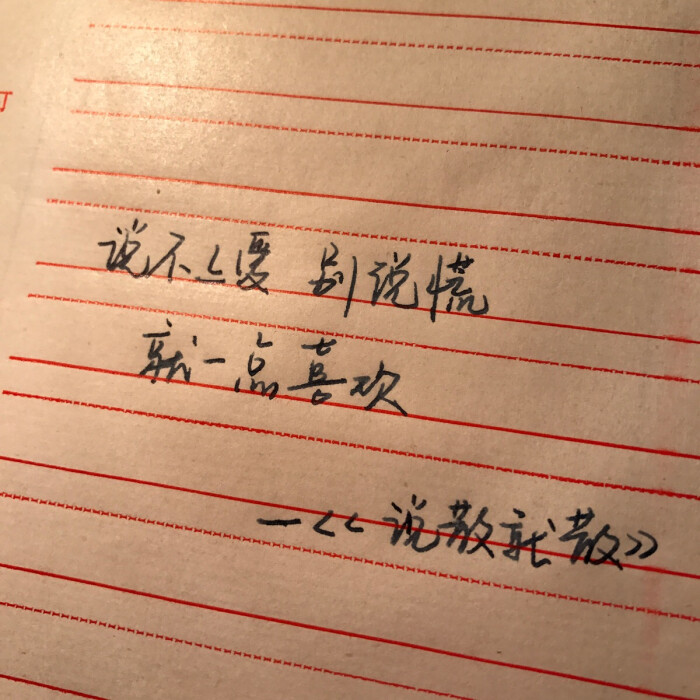 说不上爱 别说慌
就一点喜欢
—<<说散就散>>
订